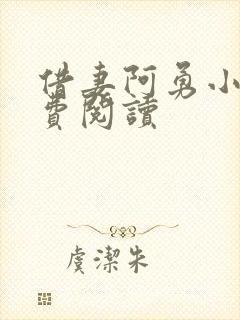 借妻阿勇小
費閱讀
虞潔朱